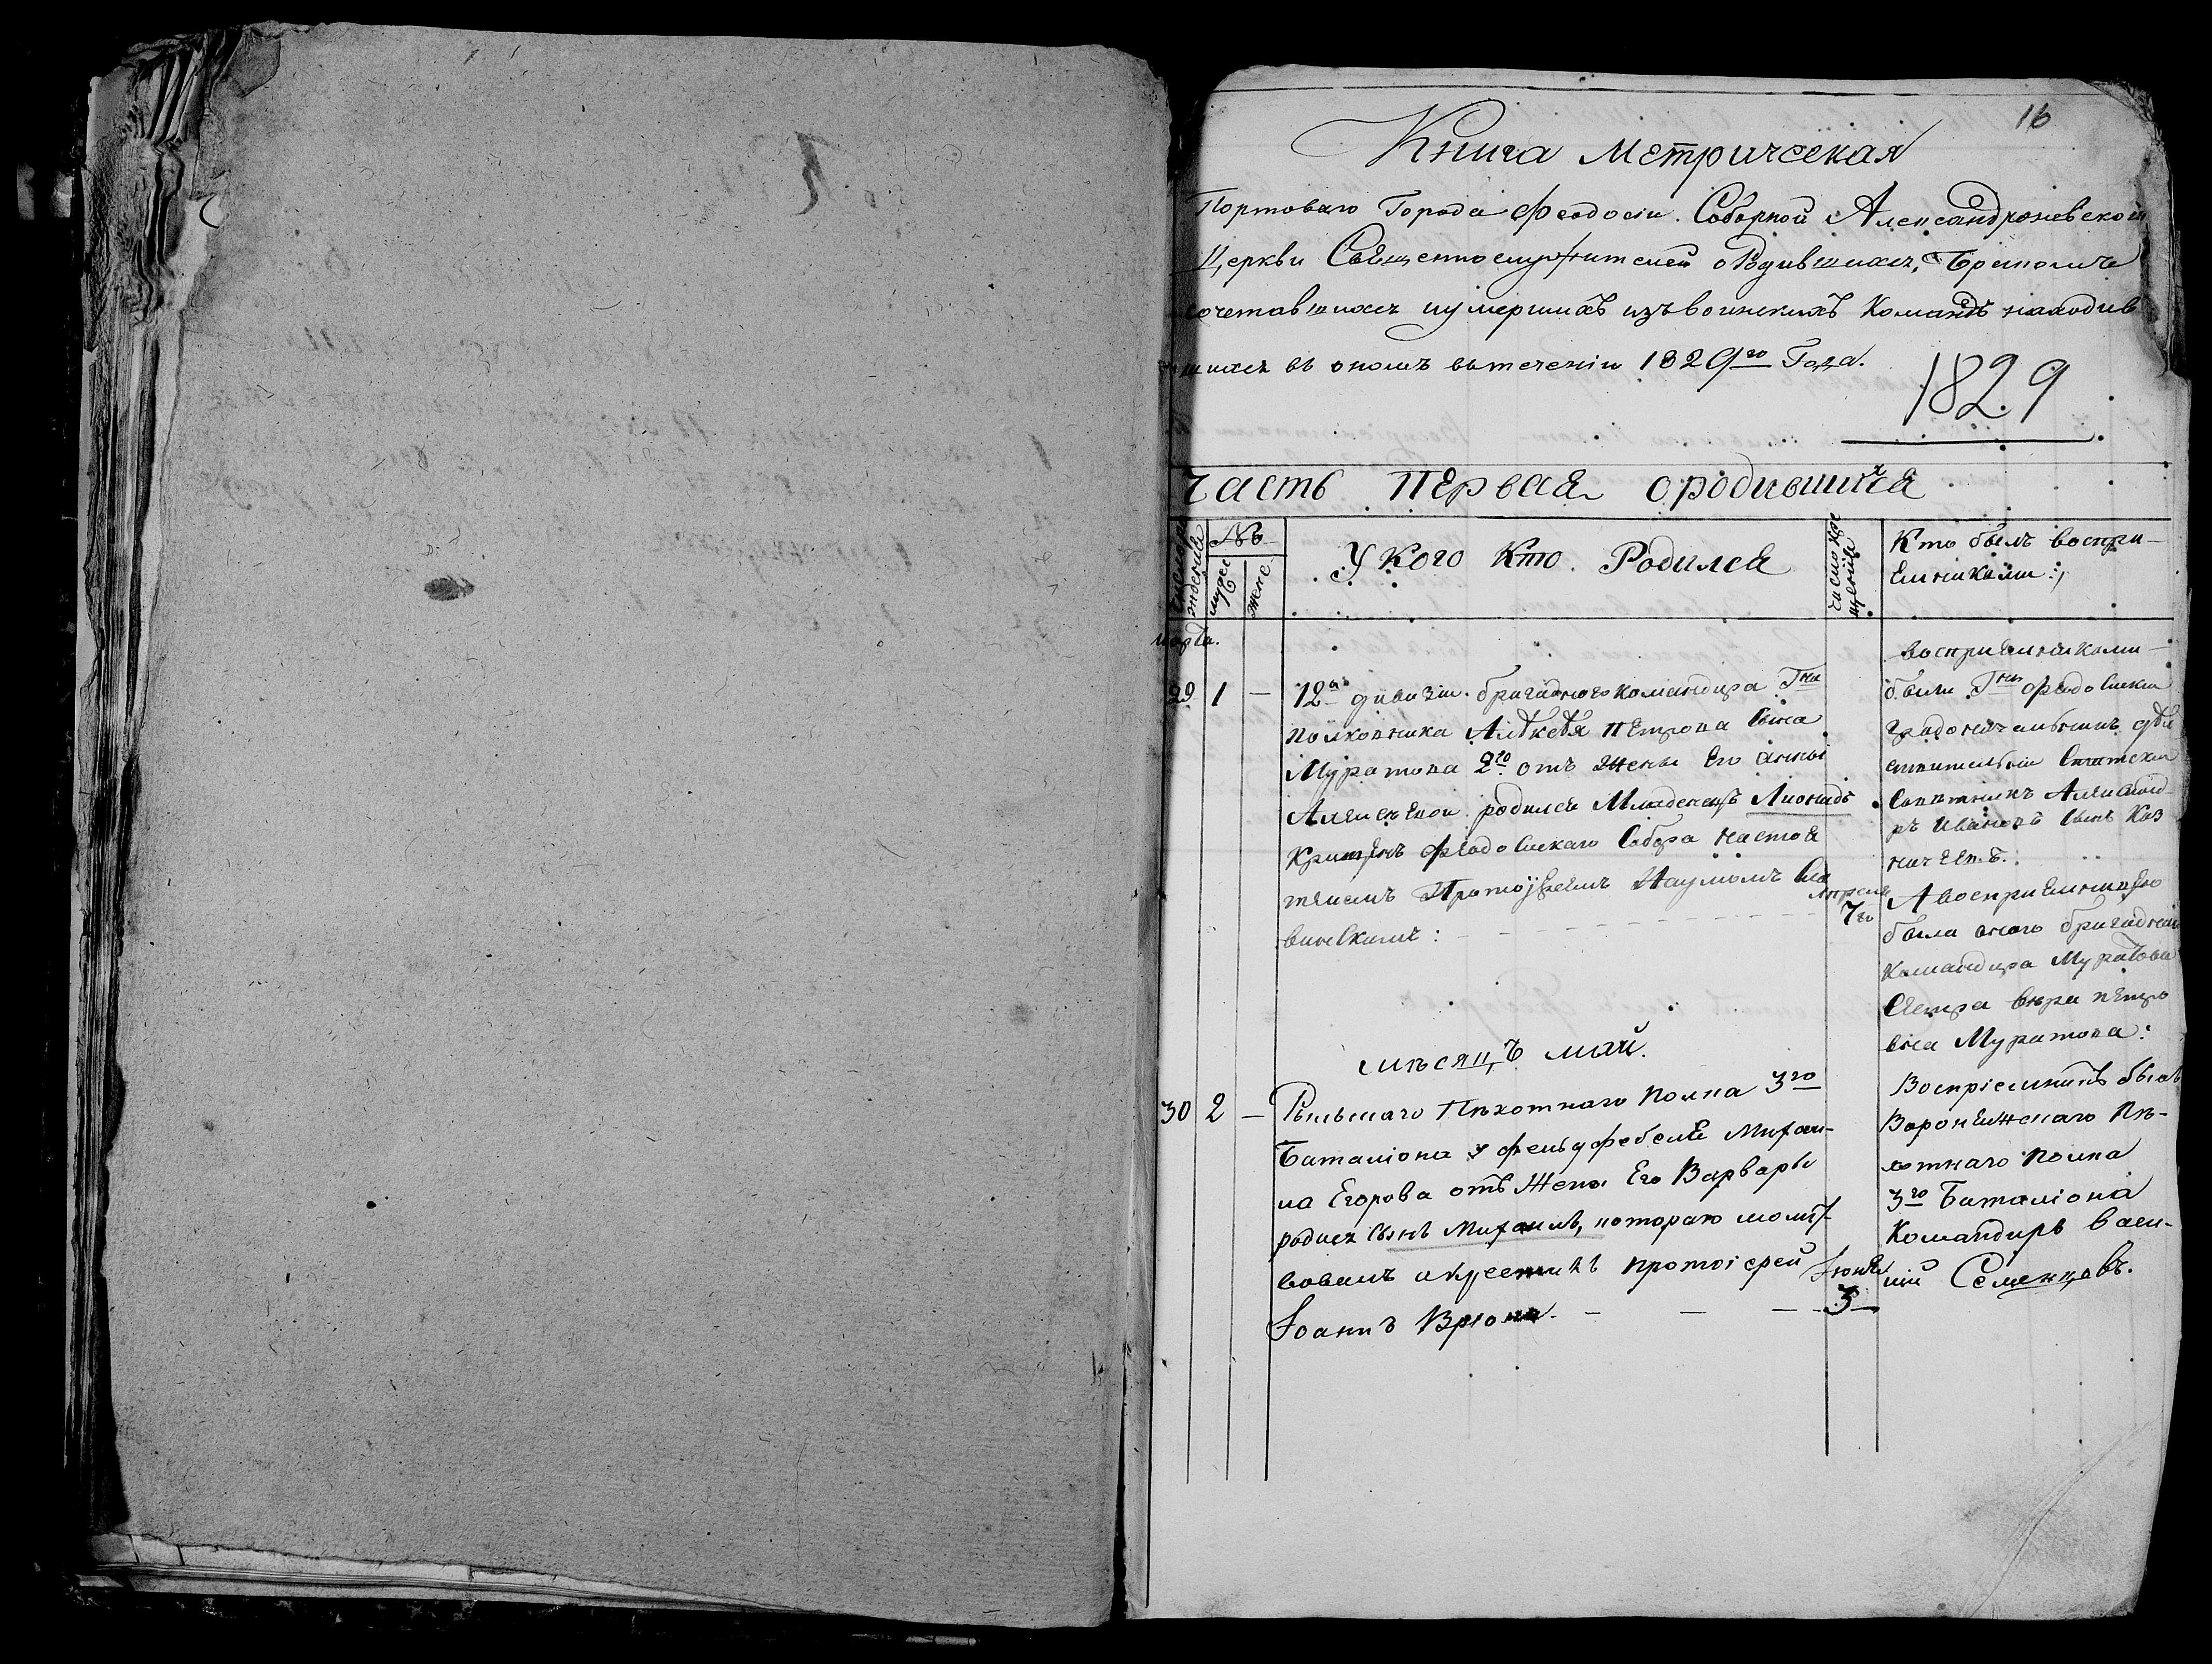 16
Книга Метрическая
Портоваго Города Феодосіи. Соборной Александроневской
Церкви Священнослужителей о Родившихся, Бракомъ
сочетавшихся и умершихъ изъ воинскихъ Командъ находив
шихся въ ономъ въ теченіи 1829го Года.
1829
Часть Первая о родившихся
Число рожденія
№
муже
жене
У кого Кто Родился
Число крещенія
Кто былъ воспри-
емниками:
Марта.
29 1 —
12й дивизіи бригаднаго командира Гна
полковника Алѣксѣя Петрова сына
Муратова 2го отъ жены его Анны
родился Младенецъ Лионидъ
Крищенъ Феодосискаго Собора настоя
тѣлемъ Протоіереемъ Наумомъ Сла
винскимъ:
Апреля
7го
восприемниками
были Гнъ Феодосиски
градоначальникъ дѣй
ствительны Статски
Советникъ Александ
ръ Ивановъ сынъ Каз
начеевъ.
А восприемницею
была онаго бригаднаго
Командира Муратова
Сестра Вера Петро
вна Муратова:
мѣсяцъ май.
30 2 —
Рыльскаго Пѣхотнаго Полка 3го
Баталіона у фельдфебеля Михаи-
ла Егорова отъ жены Его Варвары
родися сынъ Михаилъ, котораго молит
вовалъ и крестилъ протоіерей
Іоаннъ
Іюня
3
Воспріемникъ былъ
Воронежскаго Пѣ-
хотнаго Полка
3го Баталіона
Командиръ Васи-
лій Семенцовъ.